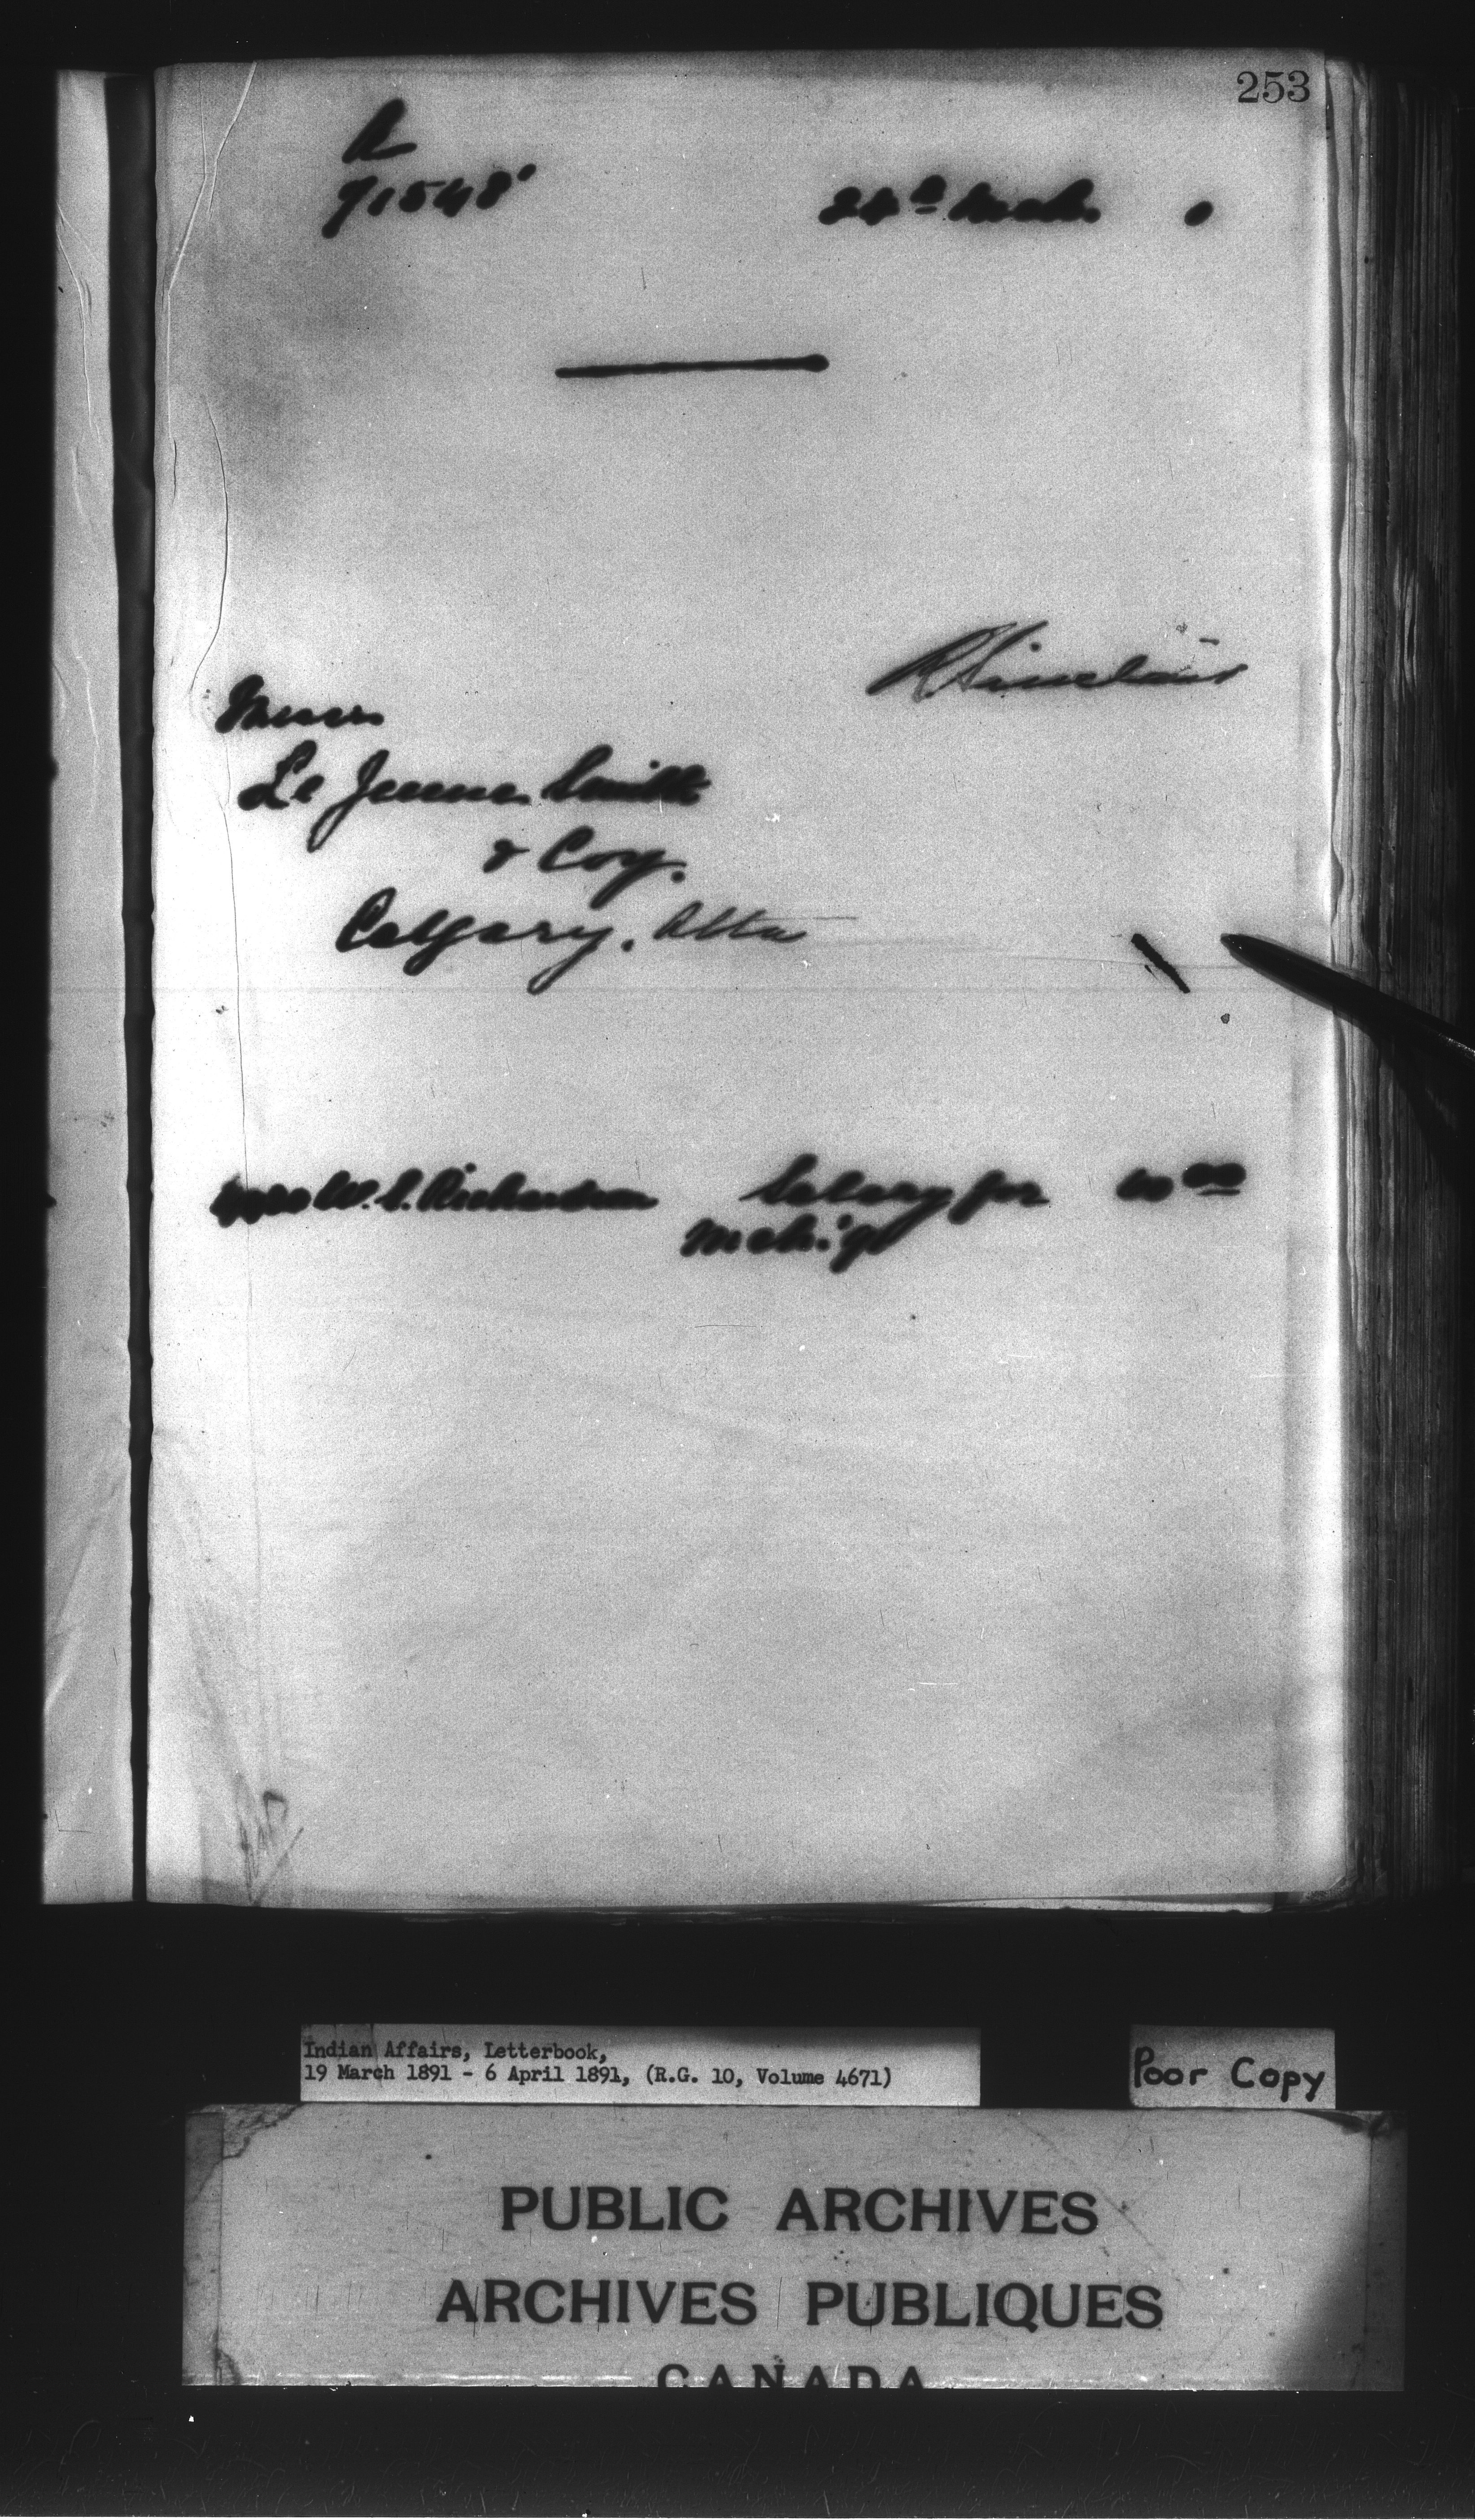 253
R
71548
24th Mch.
R Sinclair
Messrs
Le Jeune Smith
& Coy.
Calgary, Alta
W. S. Richardson Salary for
Mch: 91
Indian Affairs, Letterbook,
19 March 1891 - 6 April 1891, (R.G. 10, Volume 4671)
Poor Copy
PUBLIC ARCHIVES
ARCHIVES PUBLIQUES
CANADA